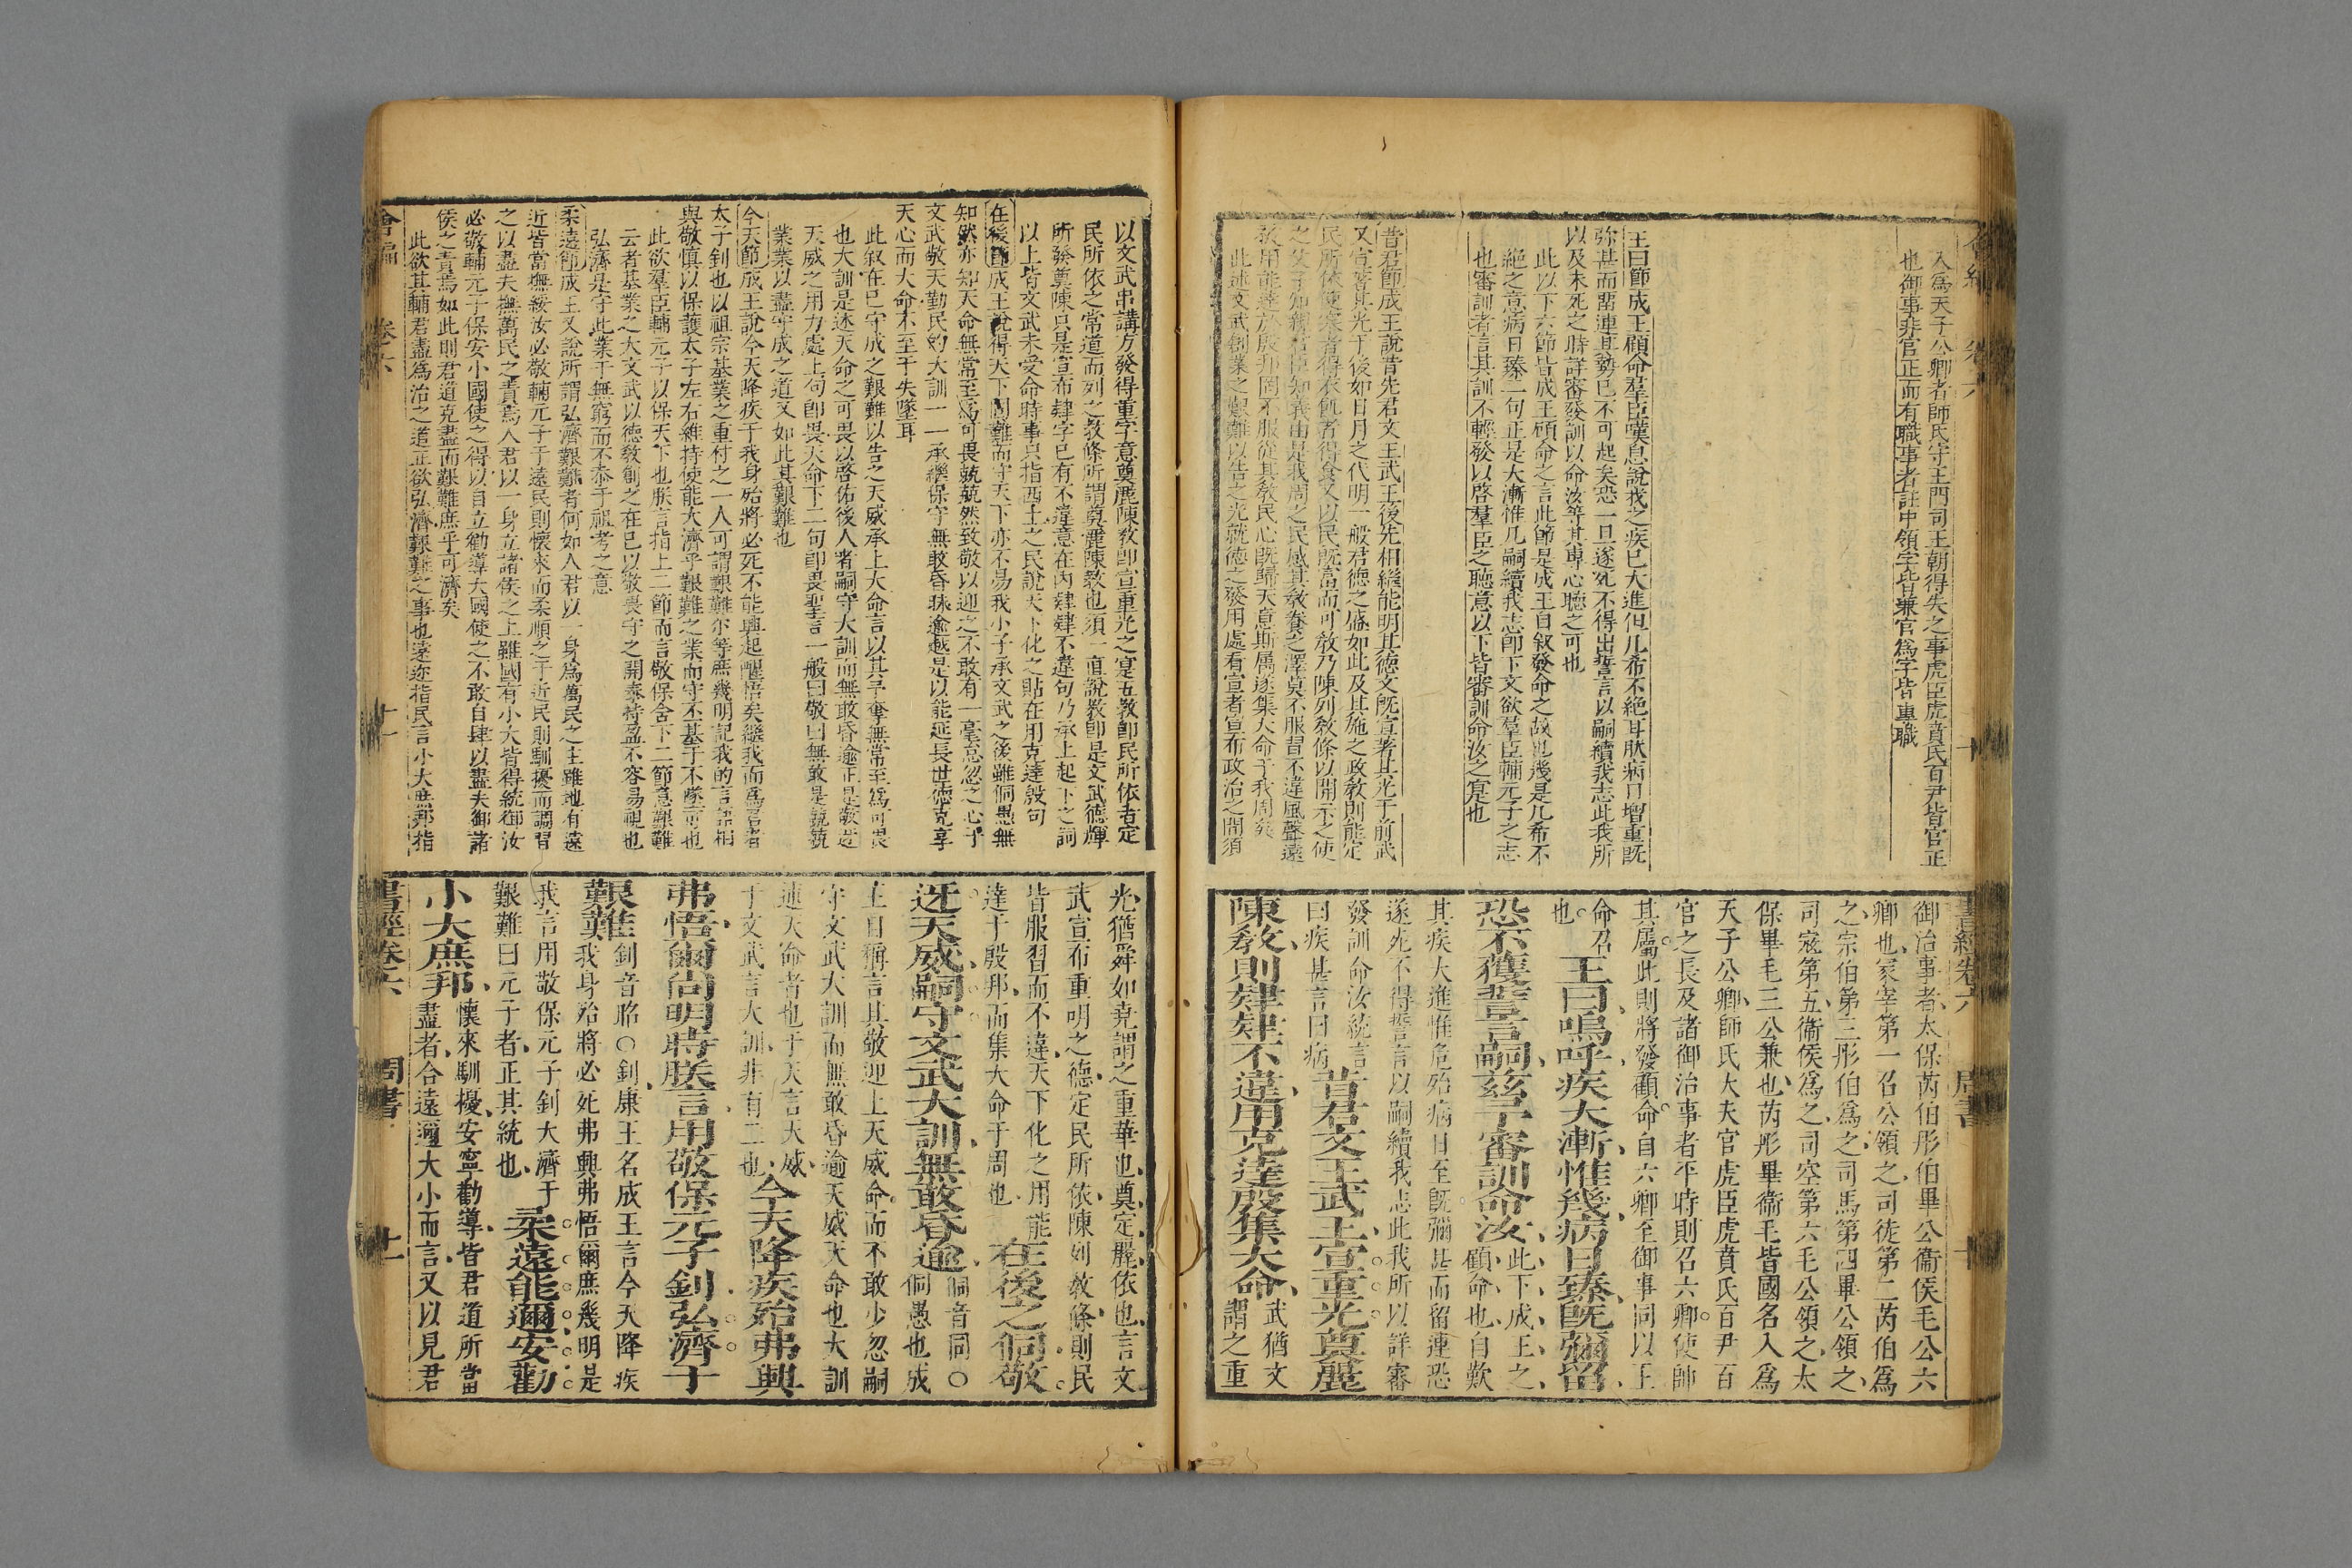 入爲天子公卿者師氏守王門司王朝得失之事虎臣虎賁氏百尹皆官正
也御事非官正而有職事者註中領字皆兼官爲字皆專職
王曰節成王顧命羣臣嘆息說我之疾已大進但几希不絕耳肰病日增重旣
弥甚而畱連其勢已不可起矣恐一旦遂死不得出誓言以嗣續我志此我所
以及未死之時詳審發訓以命汝等其專心聴之可也
此以下六節皆成王顧命之言此節是成王自叙發命之故也幾是几希不
絕之意病日臻二句正是大漸惟几嗣續我志卽下文欲羣臣輔元子之志
也審訓者言其訓不輕發以啓羣臣之聴意以下皆審訓命汝之寔也
昔君節成王說昔先君文王武王後先相繼能明其德文旣宣著其光于前武
又宣著其光于後如日月之代明一般君德之盛如此及其施之政教則能定
民所依使寒者得衣飢者得食又以民旣富而可教乃陳列教條以開示之使
之父子知親君臣知義由是我周之民感其教養之澤莫不服習不違風聲遠
教用能達於殷邦罔不服從其教民心旣歸天意斯属遂集大命于我周矣
此述文武創業之艱難以告之光就德之發用處看宣者宣布政治之間須
御治事者太保芮伯彤伯畢公衞侯毛公六
卿也冢宰第一召公領之司徒第二芮伯爲
之宗伯第三彤伯爲之司馬第四畢公領之
司寇第五衞侯爲之司空第六毛公領之太
保畢毛三公兼也芮彤畢衞毛皆國名入爲
天子公卿師氏大夫官虎臣虎賁氏百尹百
官之長及諸御治事者平時則召六卿使帥
其屬此則將發顧命自六卿至御事同以王
命召也王曰嗚呼疾大漸惟幾病日臻旣彌留
恐不獲誓言嗣茲予審訓命汝此下成王之顧命也自歎
其疾大進惟危殆病日至旣彌甚而留連恐
遂死不得誓言以嗣續我志此我所以詳審
發訓命汝統言曰疾甚言曰病昔君文王武王宣重光奠麗
陳敎則肄肄不違用克達殷集大命武猶文謂之重
以文武串講方發得重字意奠麗陳教卽宣重光之寔五教卽民所依者定
民所依之常道而列之教條所謂奠麗陳教也須一直說教卽是文武德輝
所發奠陳只是宣布肄字已有不違意在内肄肄不違句乃承上起下之詞
以上皆文武未受命時事只指西土之民說天下化之貼在用克達殷句
在後節成王說得天下固難而守天下亦不易我小子承文武之後雖侗愚無
知然亦知天命無常至爲可畏兢兢然致敬以迎之不敢有一毫怠忽之心于
文武敬天勤民的大訓一一承繼保守無敢昏昧逾越是以能延長世德克享
天心而大命不至于失墜耳
此叙在已守成之艱難以告之天威承上大命言以其予奪無常至爲可畏
也大訓是述天命之可畏以啓佑後人者嗣守大訓而無敢昏逾正是敬迓
天威之用力處上句卽畏天命下二句卽畏聖言一般曰敬曰無敢是兢兢
業業以盡守成之道又如此其艱難也
今天節成王說今天降疾于我身殆將必死不能興起醒悟矣繼我而爲君者
太子釗也以祖宗基業之重付之一人可謂艱難尔等庶幾明記我的言語相
與敬慎以保護太子左右維持使能大濟乎艱難之業而守丕基于不墜可也
此欲羣臣輔元子以保天下也朕言指上二節而言敬保含下二節意艱難
云者基業之大文武以德敎創之在已以敬畏守之開泰持盈不容易視也
弘濟是守此業于無窮而不忝于祖考之意
柔遠節成王又說所謂弘濟艱難者何如人君以一身爲萬民之主雖地有遠
近皆當撫綏汝必敬輔元子于遠民則懷來而柔順之于近民則馴擾而調習
之以盡夫撫萬民之責焉人君以一身立諸侯之上雖國有小大皆得統御汝
必敬輔元子保安小國使之得以自立勸導大國使之不敢自肆以盡夫御諸
侯之責焉如此則君道克盡而艱難庶乎可濟矣
此欲其輔君盡爲治之道正欲弘濟艱難之事也遠迩指民言小大庶邦指
會編 卷六 十一
光猶舜如堯謂之重華也奠定麗依也言文
武宣布重明之德定民所依陳列教條則民
皆服習而不違天下化之用能達于殷邦而集大命于周也在後之侗敬
迓天威嗣守文武大訓無敢昏逾侗音同○侗愚也成
王自稱言其敬迎上天威命而不敢少忽嗣
守文武大訓而無敢昏逾天威天命也大訓
述天命者也于天言天威于文武言大訓非有二也今天降疾殆弗興
弗悟爾尚明時朕言用敬保元子釗弘濟于
艱難釗音昭○釗康王名成王言今天降疾我身殆將必死弗興弗悟爾庶幾明是
我言用敬保元子釗大濟于艱難曰元子者正其統也柔遠能邇安勸
小大庶邦懷來馴擾安寧勸導皆君道所當盡者合遠邇大小而言又以見君
書經卷六 周書 十一